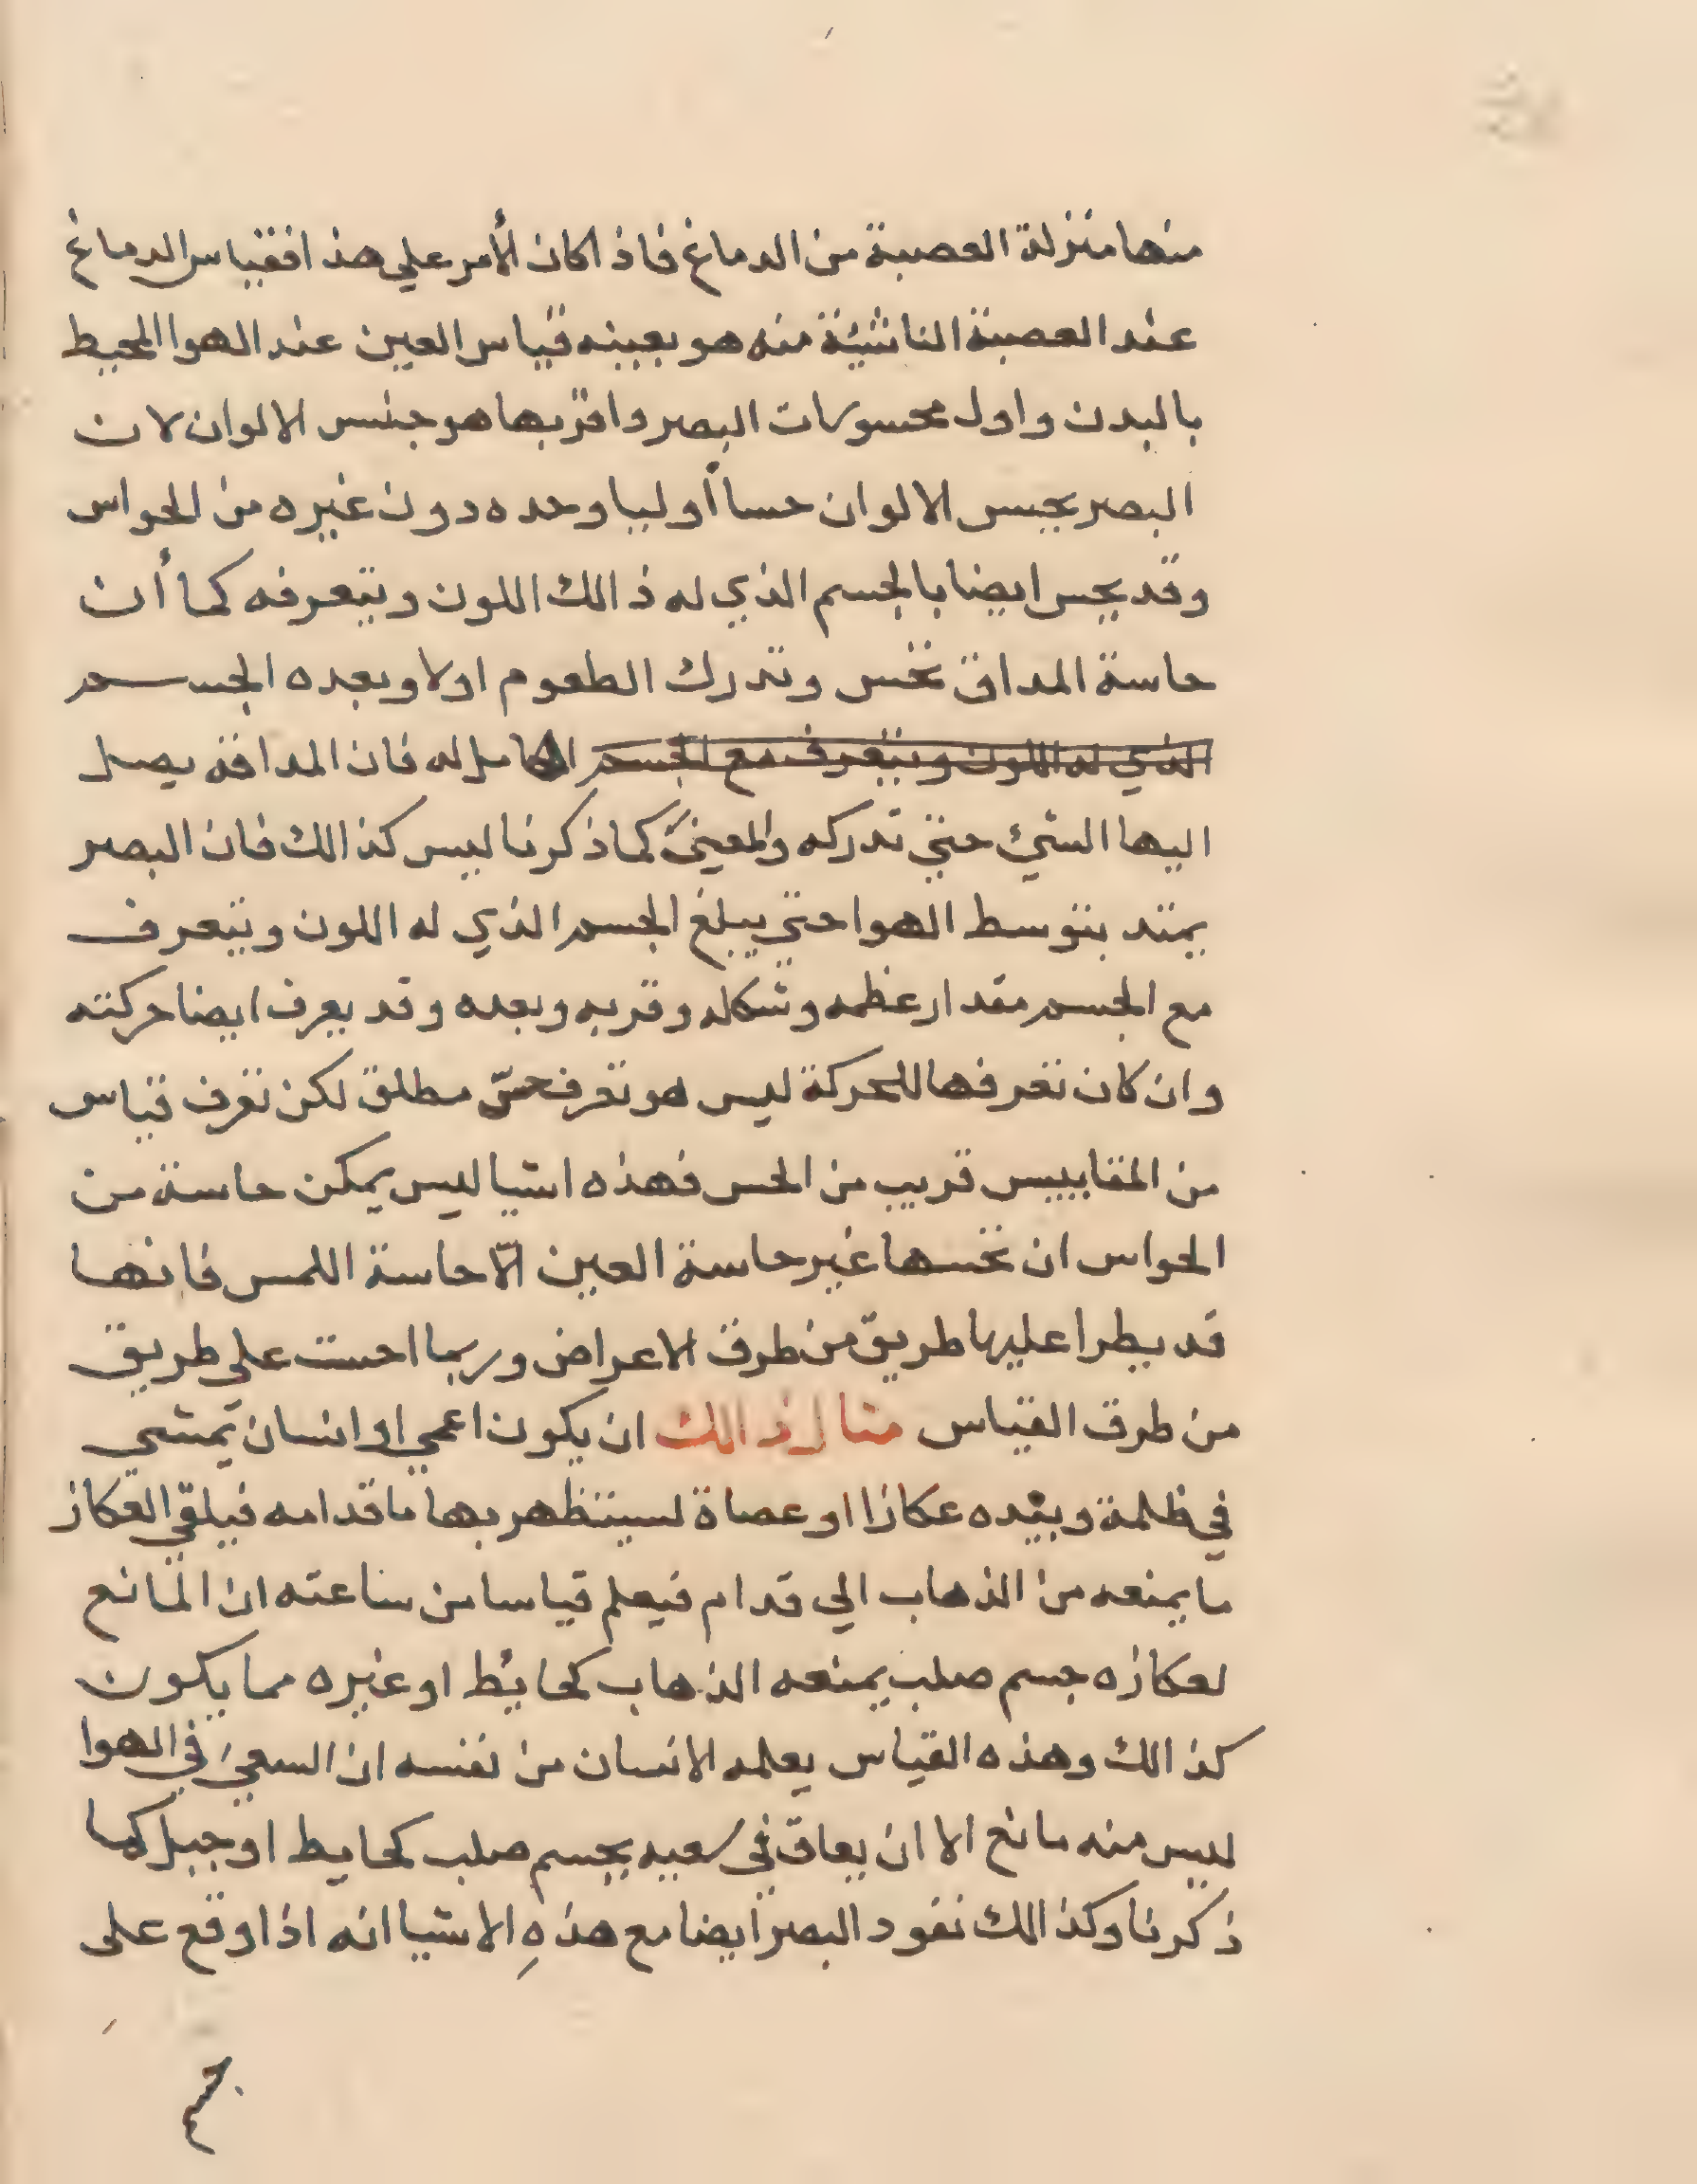 منها منزلة العصبة من الدماغ فاذا كان الأمر علي هذا فقياس الدماغ
عند العصبة الناشئة منه هو بعينه قياس العين عند الهوا المحيط
بالبدن واول محسوسات البصر واقربها هو جنس الالوان لان
البصر يحس الالوان حسا أوليا وحده دون غيره من الحواس
وقد يحس ايضا بالجسم الذي له ذالك اللون ويتعرفه كما أن
حاسة المداق تحس وتدرك الطعوم اولا وبعده الجسم
الذي له اللون ويتعرف مع الجسم الحامل له فان المداقة يصل
اليها الشئ حتي تدركه والمعين كما ذكرنا ليس كذالك فان البصر
يمتد بتوسط الهوا حتي يبلغ الجسم الذي له اللون ويتعرف
مع الجسم مقدار عظمه وشكله وقربه وبعده وقد يعرف ايضا حركته
وان كان تعرفها للحركة ليس هو تعرف حسّ مطلق لكن تعرف قياس
من المقاييس قريب من الحس فهذه اشيا ليس يمكن حاسة من
الحواس ان تحسها غير حاسة العين الّا حاسة اللمس فانها
قد يطرا عليها طريق من طرق الاعراض وربما احست علي طريق
من طرق القياس مثال ذالك ان يكون اعمي او انسان يمشي
في ظلمة وبيده عكازا او عصاة ليستظهر بها ما قدامه فيلقي العكاز
ما يمنعه من الذهاب الي قدام فيعلم قياسا من ساعته ان المانع
لعكازه جسم صلب يمنعه الذهاب كحائط او غيره مما يكون
كذالك وهذه القياس يعلمه الانسان من نفسه ان السعي في الهوا
ليس منه مانع الا ان يعاق في سعيه بجسم صلب كحايط او جبل كما
ذكرنا وكذالك نفود البصر ايضا مع هذهِ الاشيا انه اذا وقع على